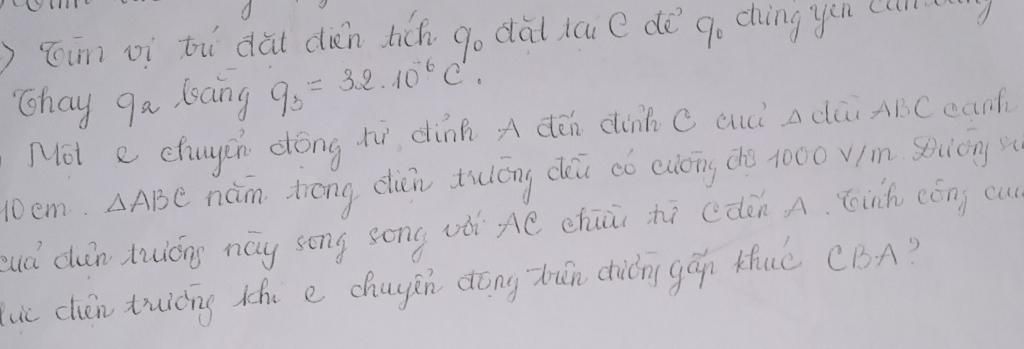 ) Tìm vị trí đặt điện tích q₀ đặt tại C để q₀ đứng yên cân bằng
Thay q₂ bằng q₃ = 3,2.10⁻⁶ C.
Một e chuyển động từ đỉnh A đến đỉnh C của Δ đều ABC cạnh
10 cm. ΔABC nằm trong điện trường đều có cường độ 1000 V/m. Đường
của điện trường này song song với AC chiều từ C đến A. Tính công của
lực điện trường khi e chuyển động trên đường gấp khúc CBA?